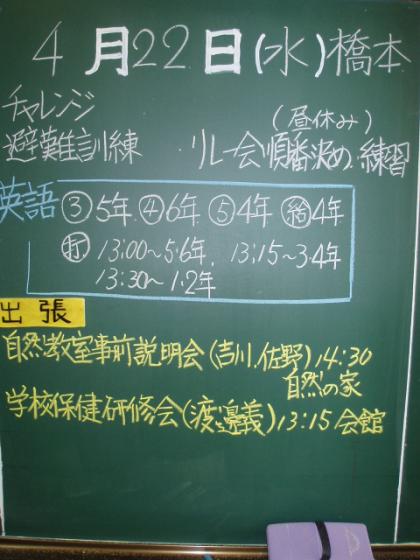 4月22日(水)橋本
チャレンジ
(昼休み)
避難訓練 リレー会順番決め、練習
英語 ③5年 ④6年 ⑤4年 ㊗4年
㊗ 13:00〜5·6年、13:15〜3·4年
13:30〜1·2年
出張
自然教室事前説明会(吉川、佐野)14:30
自然の家
学校保健研修会(渡邉義)13:15 会館